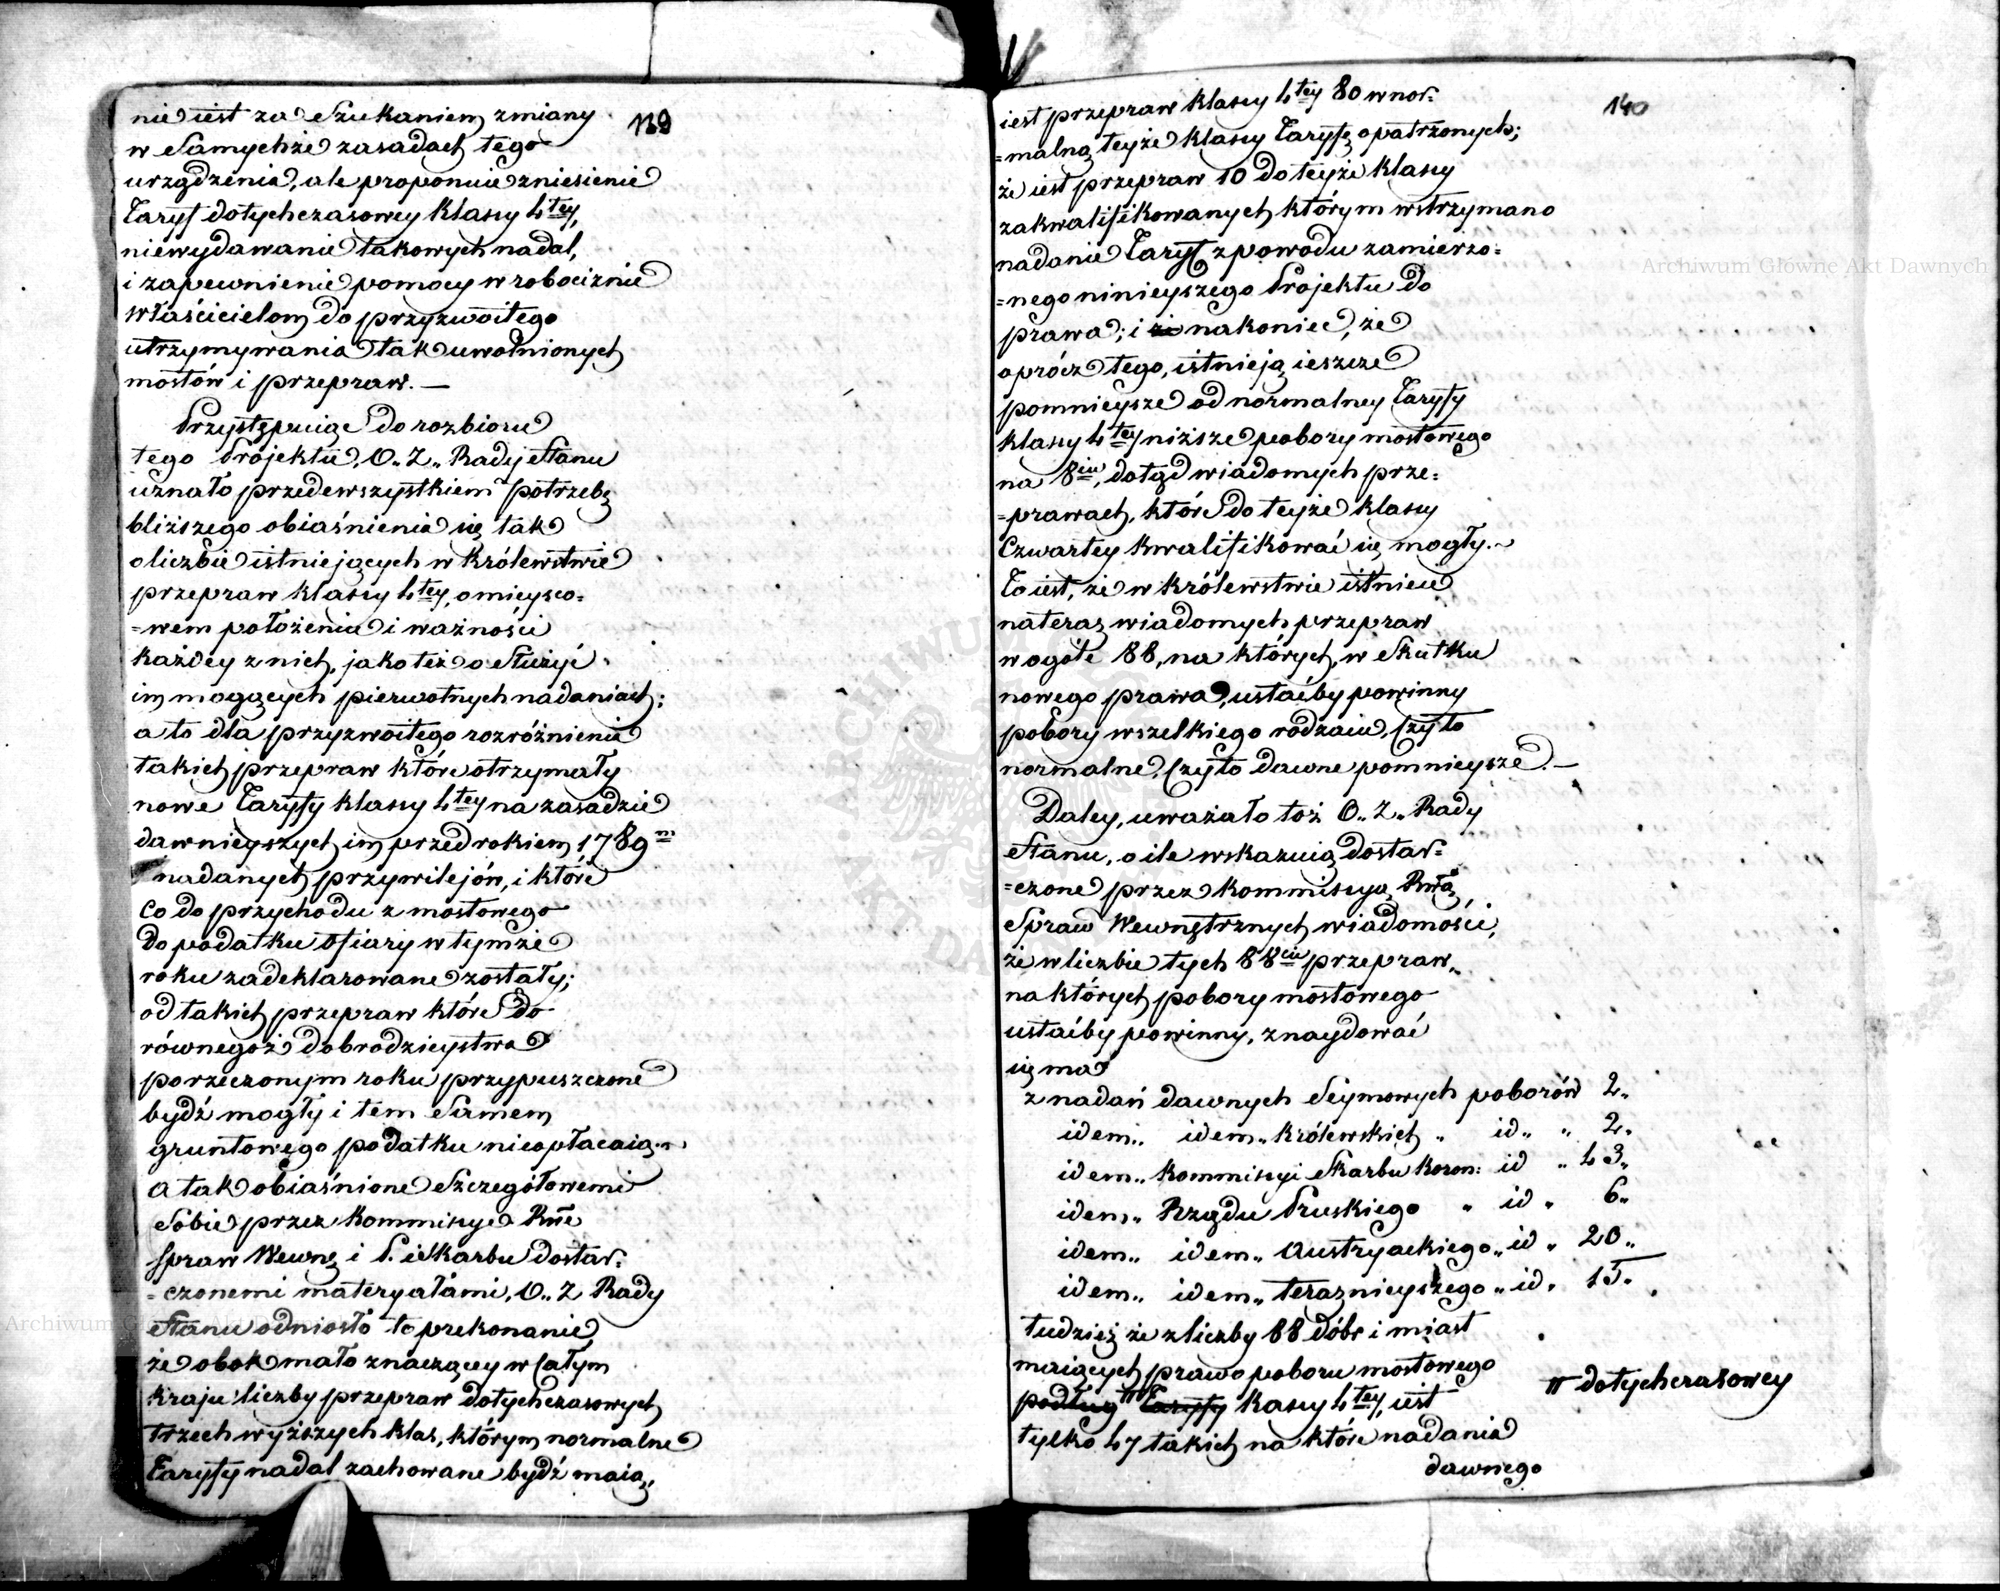 139
nie iest za Szukaniem zmiany
w Samychże zasadach tego
urządzenia, ale proponuie zniesienie
Taryf dotychczasowey klassy 4tey,
niewydawanie takowych nadal,
i zapewnienie pomocy w robociznie
właścicielom do przyzwoitego
utrzymywania tak uwolnionych
mostów i przepraw. —
Przystępuiąc do rozbioru
tego Projektu, O. Z. Rady Stanu
uznało przedewszystkiem potrzebę
bliższego obiaśnienia się tak
o liczbie istniejących w Królewstwie
przepraw klassy 4tey, o mieysco=
=wem położeniu i ważności
każdey z nich, jako też o Służyć
im mogących pierwotnych nadaniach;
a to dla przyzwoitego rozróżnienia
takich przepraw które otrzymały
nowe Taryfy klassy 4tey na zasadzie
dawnieyszych im przed rokiem 1789m
nadanych przywilejów, i które
co do przychodu z mostowego
do podatku ofiary w tymże
roku zadeklarowane zostały;
od takich przepraw które do
równegoż dobrodzieystwa
po rzeczonym roku przypuszczone
bydź mogły i tem Samem
gruntowego podatku nieopłacaią.
A tak obiaśnione Szczegółowemi
Sobie przez Kommissye Rwe
Spraw Wewnę i P. i Skarbu dostar=
=czonemi materyałami, O. Z Rady
Stanu odniosło to przekonanie,
że obok mało znaczącey w całym
kraju liczby przepraw dotychczasowych
trzech wyższych klas, którym normalne
Taryfy nadal zachowane bydź maią,
140
iest przepraw klassy 4tey 80 w nor=
=malną teyże klassy Taryfę opatrzonych;
że iest przepraw 10 do teyże klassy
zakwalifikowanych którym wstrzymano
nadanie Taryf z powodu zamierzo=
=nego ninieyszego Projektu do
prawa; i że nakoniec, że
oprócz tego, istnieją ieszcze
pomnieysze od normalney Taryfy
klassy 4tey niższe pobory mostowego
na 8iu, dotąd wiadomych prze=
=prawach, które do teyże klassy
Czwartey kwalifikować się mogły.
To iest, że w królewstwie istnieie
na teraz wiadomych przepraw
w ogóle 88, na których, w Skutku
nowego prawa, ustaćby powinny
pobory wszelkiego rodzaiu, czy to
normalne, czy to dawne pomnieysze. —
Daley, uważało toż O. Z. Rady
Stanu, o ile wskazuią dostar=
=czone przez Kommissyą Rwą
Spraw Wewnętrznych wiadomości,
że w liczbie tych 88iu przepraw,
na których pobory mostowego
ustaćby powinny, znaydować
się ma
z nadań dawnych Seymowych poborów 2.
idem. idem. królewskich " id. " 2.
idem. Kommissyi Skarbu Koron: id " 43.
idem. Rządu Pruskiego " id " 6.
idem. idem. Austryackiego " id " 20.
idem. idem. teraznieyszego " id. 15.
tudzież że z liczby 88 dóbr i miast
maiących prawo poboru mostowego
podług Taryfy kassy 4tey, iest
# dotychczasowey
tylko 47 takich na które nadania
dawnego